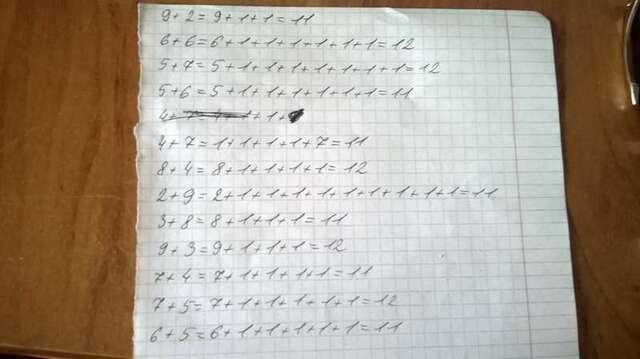 9+2=9+1+1=11
6+6=6+1+1+1+1+1+1=12
5+7=5+1+1+1+1+1+1+1=12
5+6=5+1+1+1+1+1+1=11
4+7=1+1+1+1+7=11
8+4=8+1+1+1+1=12
2+9=2+1+1+1+1+1+1+1+1+1=11
3+8=8+1+1+1=11
9+3=9+1+1+1=12
7+4=7+1+1+1+1=11
7+5=7+1+1+1+1+1=12
6+5=6+1+1+1+1+1=11